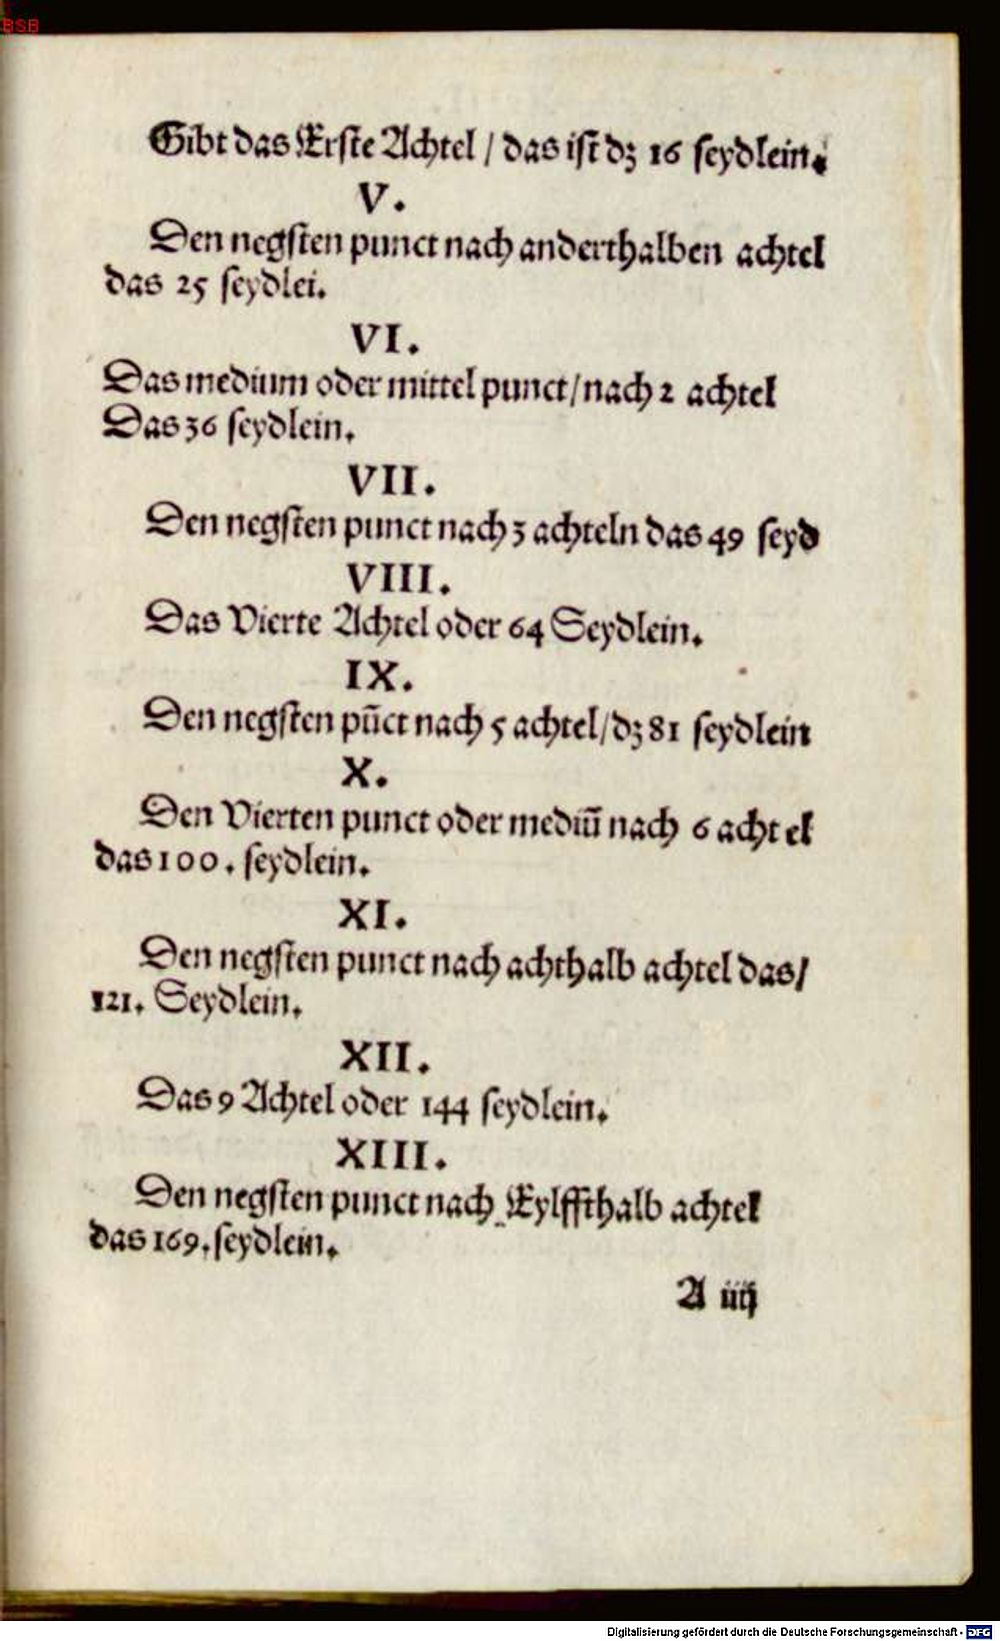 BSB
Gibt das Erste Achtel / das ist dz 16 seydlein.
V.
Den negsten punct nach anderthalben achtel
das 25 seydlei.
VI.
Das medium oder mittel punct / nach 2 achtel
Das 36 seydlein.
VII.
Den negsten punct nach 3 achteln das 49 seyd
VIII.
Das Vierte Achtel oder 64 Seydlein.
IX.
Den negsten pūct nach 5 achtel / dz 81 seydlein
X.
Den Vierten punct oder mediū nach 6 achtel
das 100. seydlein.
XI.
Den negsten punct nach achthalb achtel das /
121. Seydlein.
XII.
Das 9 Achtel oder 144 seydlein.
XIII.
Den negsten punct nach Eylffthalb achtel
das 169. seydlein.
A iiij
Digitalisierung gefördert durch die Deutsche Forschungsgemeinschaft - DFG